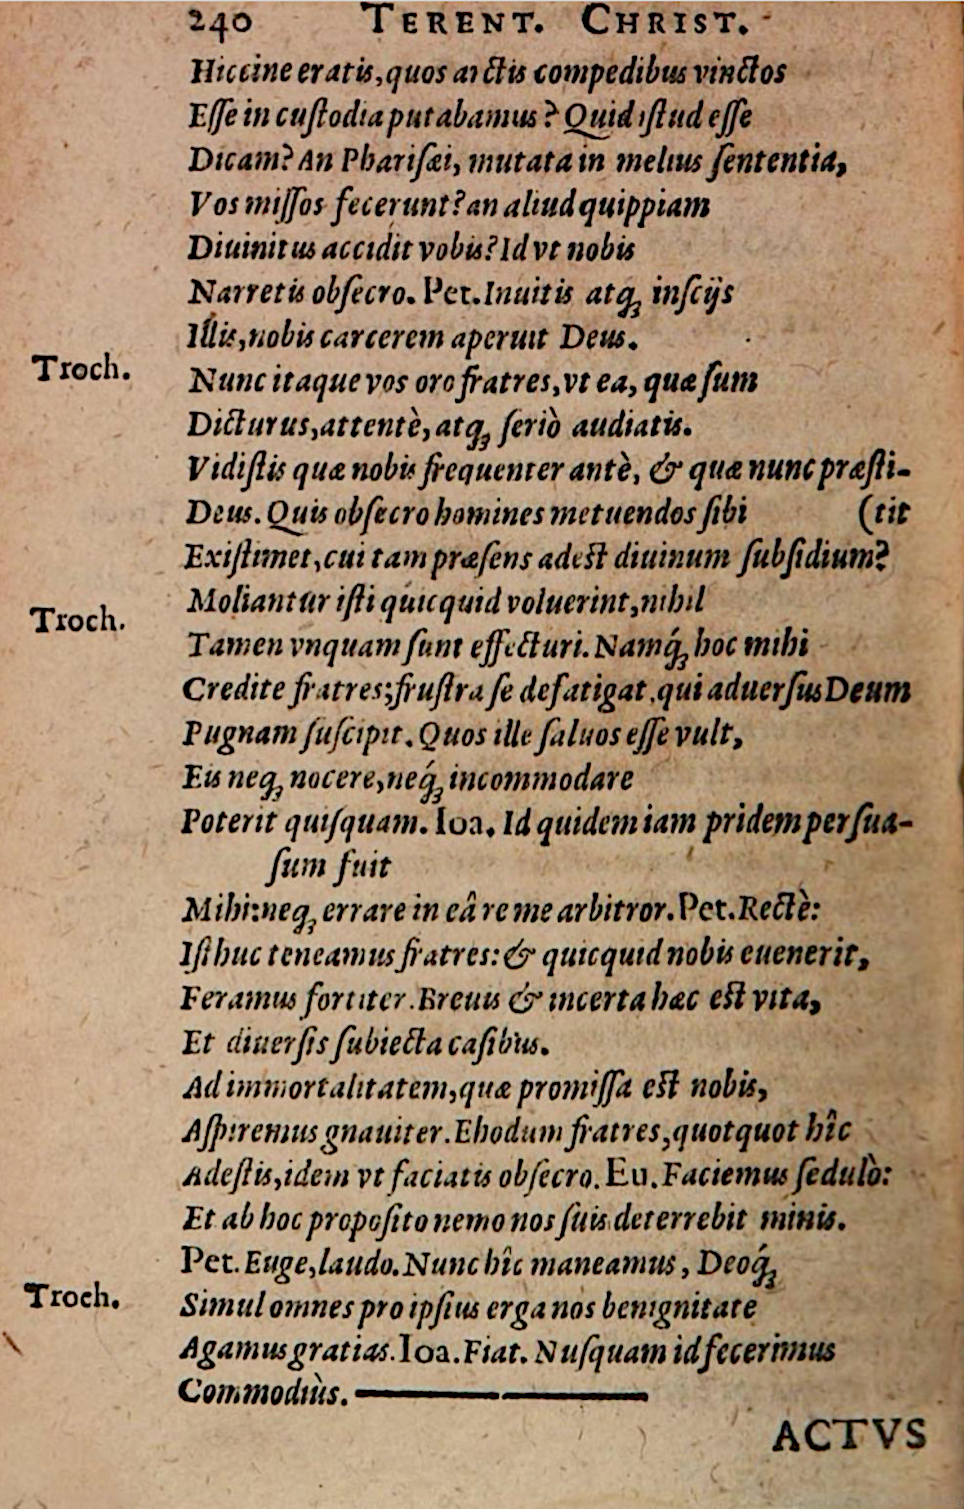 240 TERENT. CHRIST.
Hiccine eratis, quos arctis compedibus vinctos
Eſſe in cuſtodia putabamus? Quid iſtud eſſe
Dicam? An Phariſæi, mutata in melius ſententia,
Vos miſſos fecerunt? an aliud quippiam
Diuinitus accidit vobis? Id vt nobis
Narretis obſecro. Pet. Inuitis atq; inſcijs
Illis, nobis carcerem aperuit Deus.
Troch. Nunc itaque vos oro fratres, vt ea, quæ ſum
Dicturus, attentè, atq; ſeriò audiatis.
Vidiſtis quæ nobis frequenter antè, & quæ nunc præſti-
Deus. Quis obſecro homines metuendos ſibi (tit
Exiſtimet, cui tam præſens adeſt diuinum ſubſidium?
Moliantur iſti quicquid voluerint, nihil
Troch. Tamen vnquam ſunt effecturi. Namq́; hoc mihi
Credite fratres; fruſtra ſe defatigat, qui aduerſus Deum
Pugnam ſuſcipit. Quos ille ſaluos eſſe vult,
Eis neq; nocere, neq́; incommodare
Poterit quiſquam. Ioa. Id quidem iam pridem perſua-
ſum fuit
Mihi: neq; errare in eâ re me arbitror. Pet. Rectè:
Iſthuc teneamus fratres: & quicquid nobis euenerit,
Feramus fortiter. Breuis & incerta hæc eſt vita,
Et diuerſis ſubiecta caſibus.
Ad immortalitatem, quæ promiſſa eſt nobis,
Aſpiremus gnauiter. Ehodum fratres, quotquot hîc
Adeſtis, idem vt faciatis obſecro. Eu. Faciemus ſedulò:
Et ab hoc propoſito nemo nos ſuis deterrebit minis.
Pet. Euge, laudo. Nunc hîc maneamus, Deoq́;
Troch. Simul omnes pro ipſius erga nos benignitate
Agamus gratias. Ioa. Fiat. Nuſquam id fecerimus
Commodiùs.
ACTVS